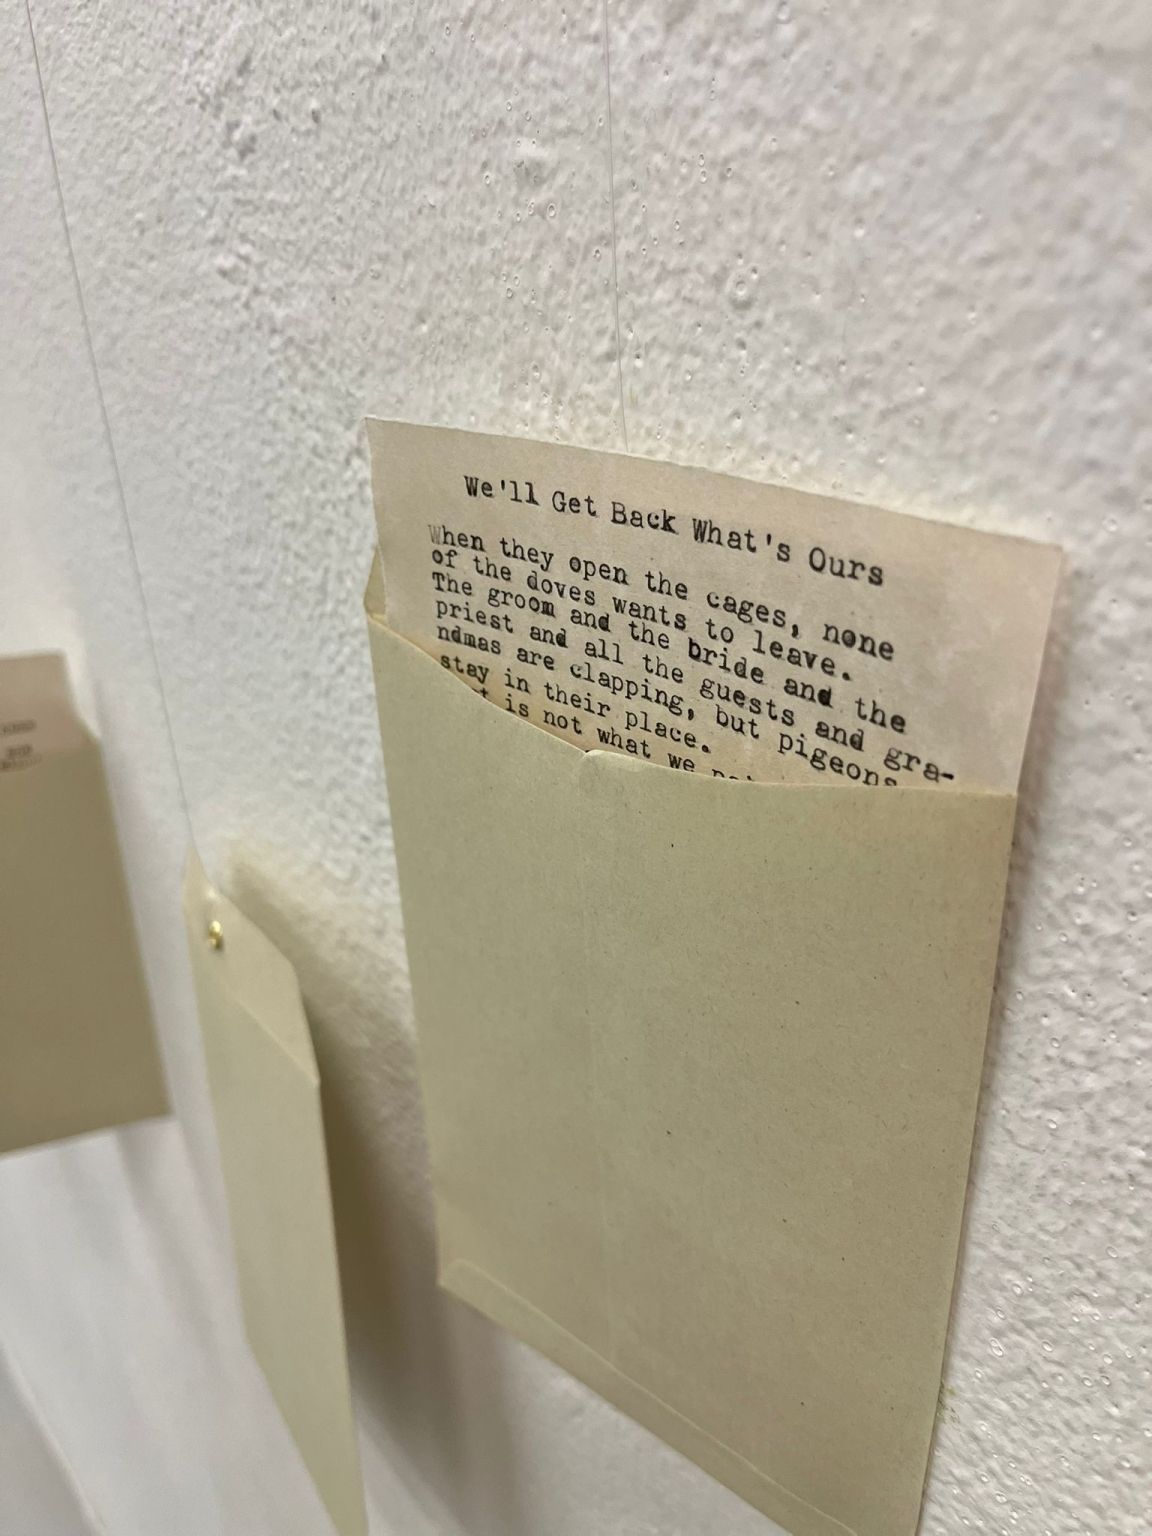 We'll Get Back What's Ours
When they open the cages, none
of the doves wants to leave.
The groom and the bride and the
priest and all the guests and gra-
ndmas are clapping, but pigeons
stay in their place.
is not what we